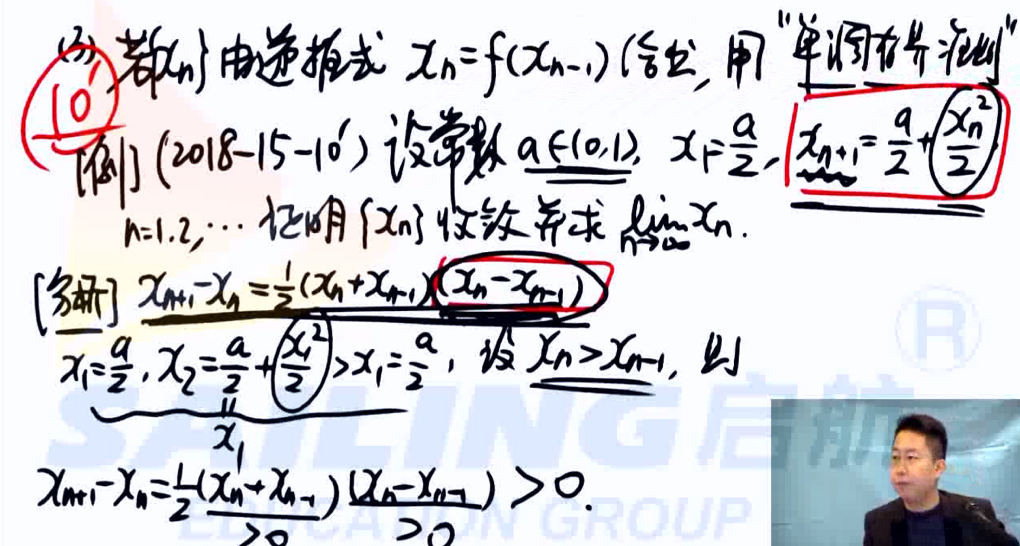 (3) 若{xₙ}由递推式 xₙ=f(xₙ₋₁)给出, 用"单调有界准则"
10'
[例] (2018-15-10') 设常数 a∈(0,1), x₁=a/2, xₙ₊₁=a/2+xₙ²/2
n=1.2,… 证明{xₙ}收敛并求 lim n→∞ xₙ.
[分析] xₙ₊₁-xₙ=1/2(xₙ+xₙ₋₁)(xₙ-xₙ₋₁)
x₁=a/2, x₂=a/2+x₁²/2>x₁=a/2, 设 xₙ>xₙ₋₁, 则
x₁
xₙ₊₁-xₙ=1/2(xₙ+xₙ₋₁)(xₙ-xₙ₋₁)>0.
>0 >0
SAILING启航®
EDUCATION GROUP